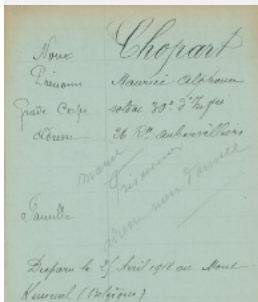 Nom Chopart
Prénoms Maurice Alphonse
Grade Corps soldat 30e d'Infie
Adresse 26 Rte Aubervilliers
Prisonnier
adresse non donnée
Famille
Disparu le 25 Avril 1918 au Mont
Kemmel (Belgique)